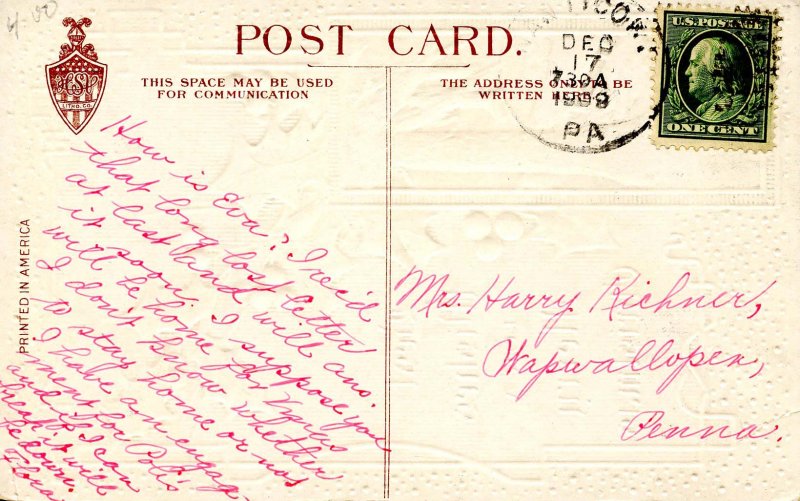 4-00
POST CARD.
THIS SPACE MAY BE USED
FOR COMMUNICATION
THE ADDRESS ONLY TO BE
WRITTEN HERE
DEC
17
730A
1909
PA
U.S. POSTAGE
ONE CENT
LITHO. CO.
PRINTED IN AMERICA
How is Eva? I rec'd
that long lost letter
at last and will ans.
it soon. I suppose you
will be home for Xmas
I don't know whether
to stay home or not
I have an engage-
ment for Polis
and if I can
break it will
be down.
Flora
Mrs. Harry Richner,
Wapwallopen,
Penna.